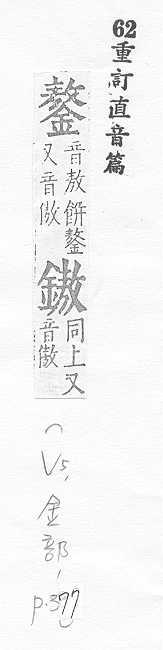 62重訂直音篇
鏊音敖餅鏊又音傲
鏾同上又音傲
(V5,金部,p.377)